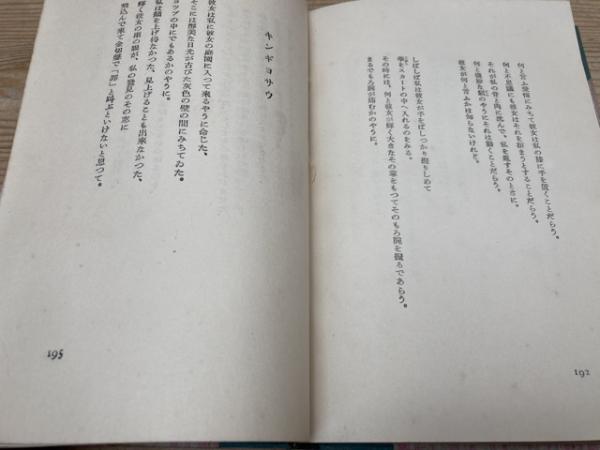 何と言ふ愛情にみちて彼女は私の膝に手を置くことだらう。
何と不思議にも彼女はそれを始まうとすることだらう。
それが私の骨と肉に沈んで、私を乱すそのときに。
何と強靭な錠のやうにそれは動くことだらう。
彼女が何と言ふかは知らないけれど。
しばしば私は彼女が手をばしつかり握りしめて
拳をスカートの中へ入れるのをみる。
その時には、何と彼女が輝く大きなその掌をもつてそのもろ腕を握るであらう。
まるでもろ腕が痛むかのやうに。
192
キンギヨサウ
彼女は私に彼女の庭園に入つて来るやうに命じた、
そこには醇美な日光が古びた灰色の壁の間にみちてゐた。
コップの中にでもあるかのやうに。
私は顔を上げ得なかつた、見上げることも出来なかつた、
輝く彼女の両の眼が、私の発見のその窓に
飛込んで来て金切聲で「罪」と呼ぶといけないと思つて。
195